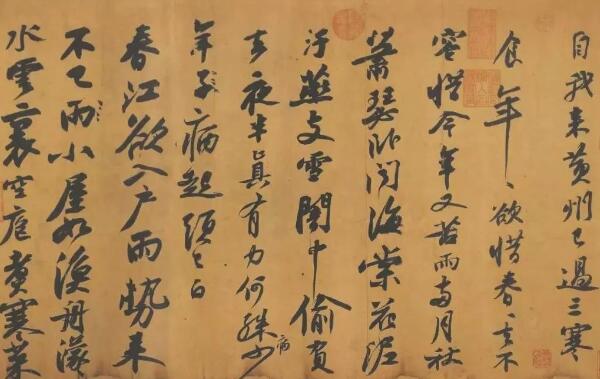 自我来黄州已過三寒
食年〻欲惜春〻去不
容惜今年又苦雨两月秋
蕭瑟卧聞海棠花泥
汙燕支雪闇中偷負
去夜半真有力何殊少
病
年子病起頭已白
春江欲入户雨勢来
不已雨小屋如漁舟濛
水雲裏空庖煮寒菜